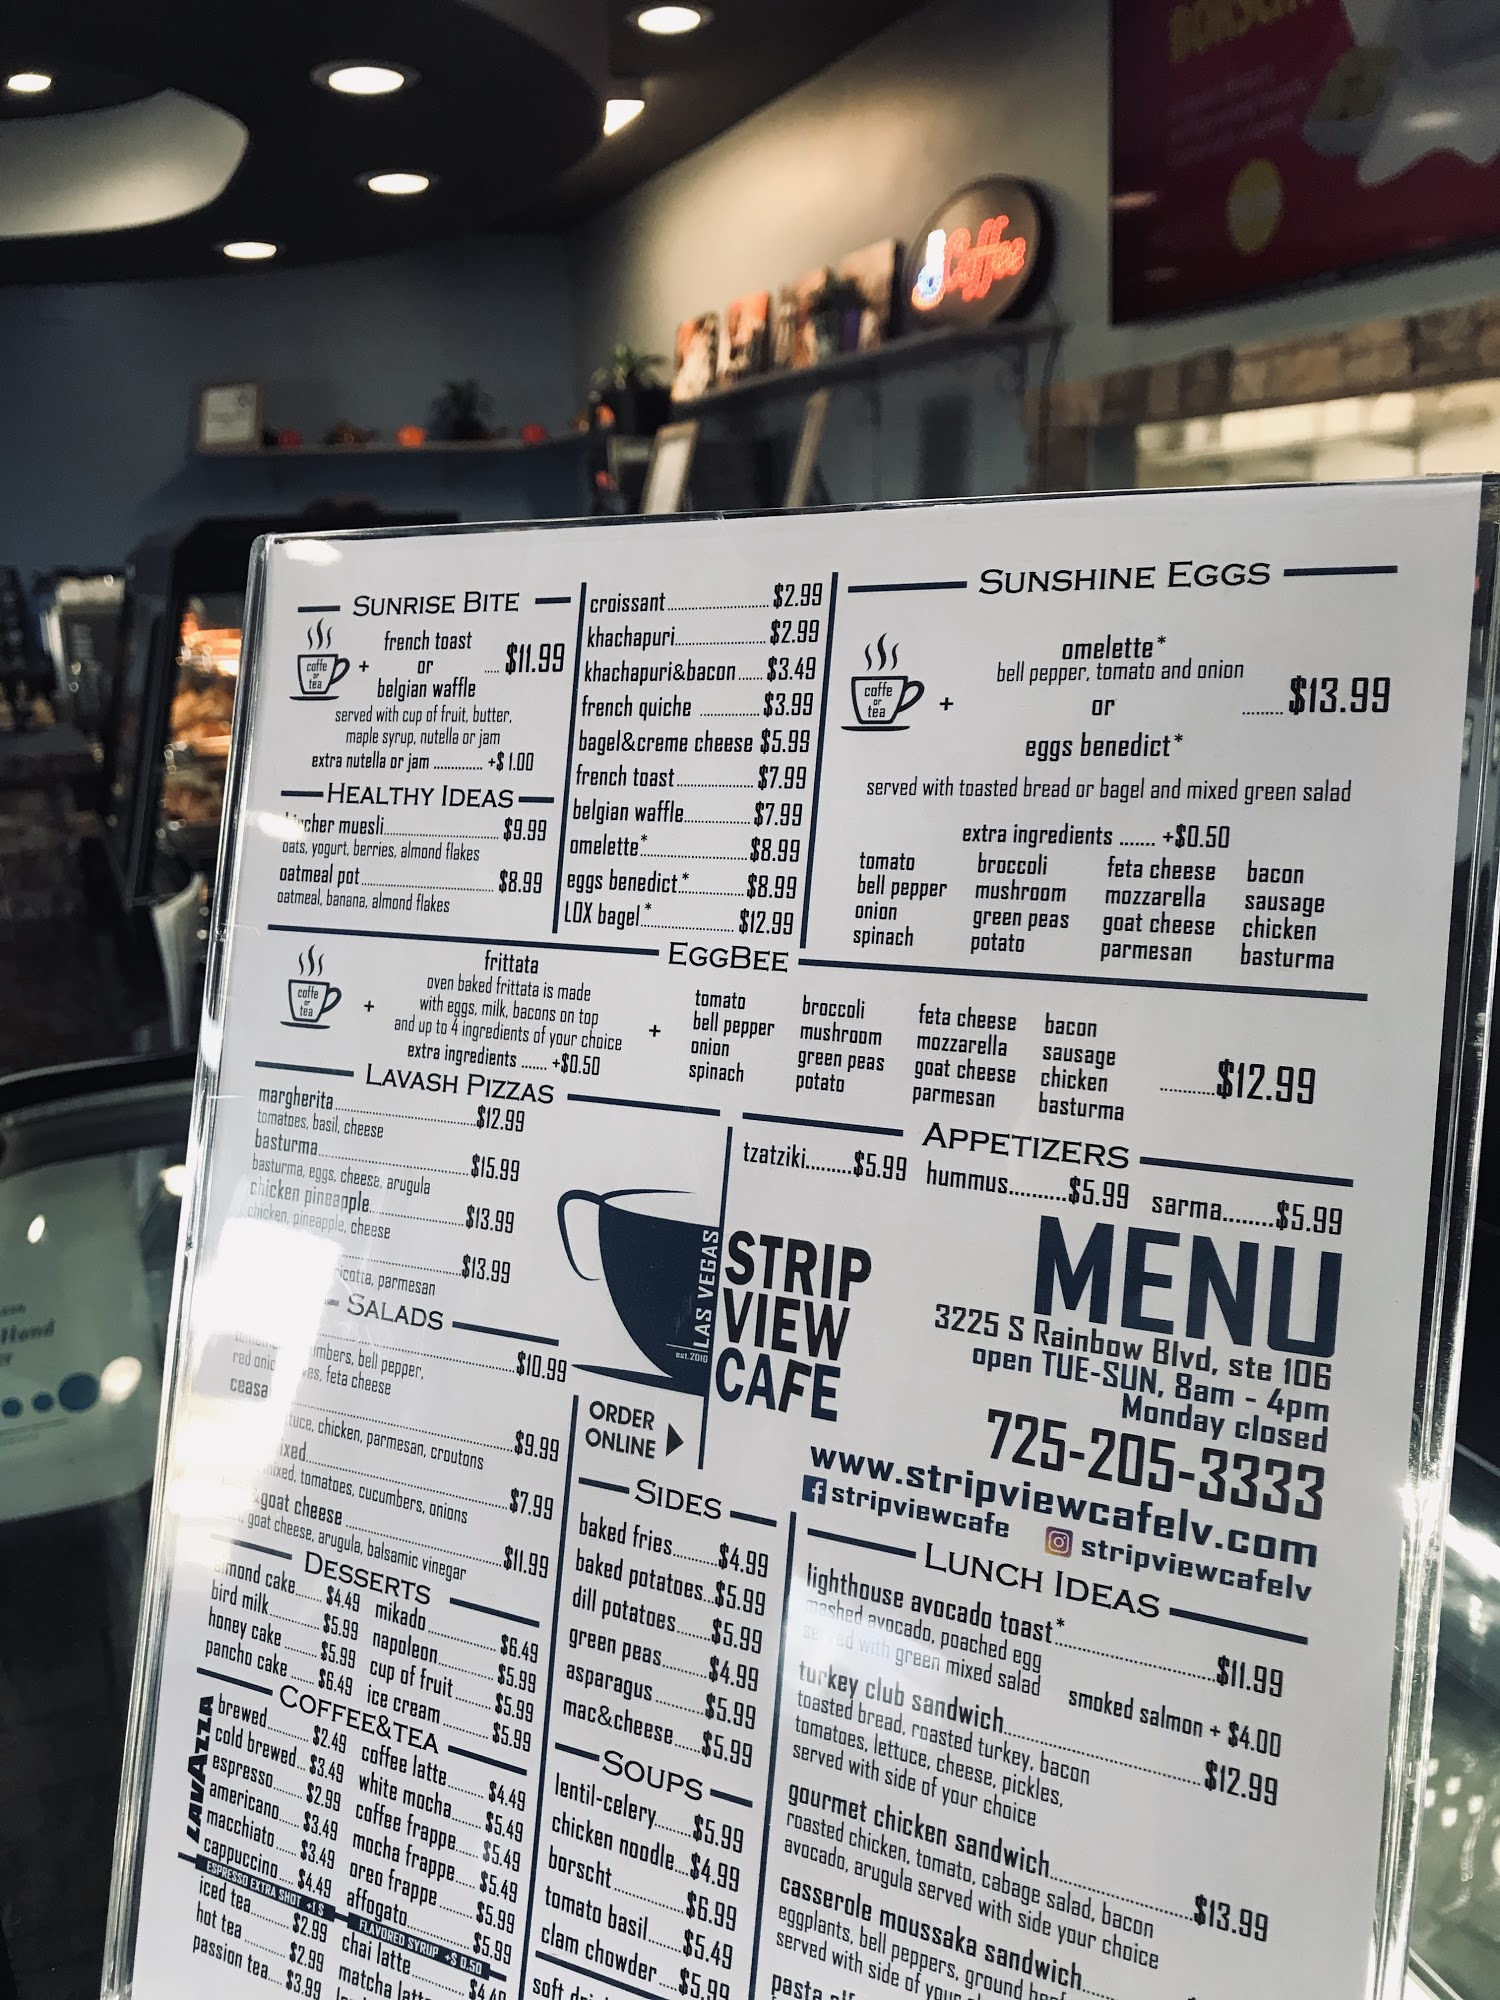 Coffee
SUNRISE BITE
coffe
or
tea
+
french toast
or
belgian waffle
.... $11.99
served with cup of fruit, butter,
maple syrup, nutella or jam
extra nutella or jam .............. +$1.00
HEALTHY IDEAS
muesli.............................. $9.99
oats, yogurt, berries, almond flakes
oatmeal pot.................................... $8.99
oatmeal, banana, almond flakes
croissant............................ $2.99
khachapuri......................... $2.99
khachapuri&bacon....... $3.49
french quiche ................ $3.99
bagel&creme cheese $5.99
french toast..................... $7.99
belgian waffle.................. $7.99
omelette*............................. $8.99
eggs benedict*............... $8.99
LOX bagel*........................ $12.99
SUNSHINE EGGS
coffe
or
tea
+
omelette*
bell pepper, tomato and onion
or
eggs benedict*
......... $13.99
served with toasted bread or bagel and mixed green salad
extra ingredients ....... +$0.50
tomato broccoli feta cheese bacon
bell pepper mushroom mozzarella sausage
onion green peas goat cheese chicken
spinach potato parmesan basturma
EGGBEE
coffe
or
tea
+
frittata
oven baked frittata is made
with eggs, milk, bacons on top
and up to 4 ingredients of your choice
extra ingredients ....... +$0.50
+
tomato broccoli feta cheese bacon
bell pepper mushroom mozzarella sausage
onion green peas goat cheese chicken
spinach potato parmesan basturma
............$12.99
LAVASH PIZZAS
margherita....................................$12.99
tomatoes, basil, cheese
basturma.......................................$15.99
basturma, eggs, cheese, arugula
chicken pineapple.......................$13.99
chicken, pineapple, cheese
.......................$13.99
parmesan
SALADS
bell pepper, ....................$10.99
red feta cheese
......................$9.99
chicken, parmesan, croutons
.......................$7.99
tomatoes, cucumbers, onions
goat cheese.............................$11.99
goat cheese, arugula, balsamic vinegar
DESSERTS
cake...... $4.49
bird milk.......... $5.99
honey cake ....... $5.99
pancho cake .... $6.49
mikado................ $6.49
napoleon............. $5.99
cup of fruit......... $5.99
ice cream ............ $5.99
COFFEE&TEA
LAVAZZA
brewed......... $2.49
cold brewed... $3.49
espresso....... $2.99
americano..... $3.49
macchiato...... $3.49
cappuccino.... $4.49
ESPRESSO EXTRA SHOT +1$
iced tea......... $2.99
hot tea .......... $2.99
passion tea.... $3.99
coffee latte........ $4.49
white mocha....... $5.49
coffee frappe..... $5.49
mocha frappe..... $5.49
oreo frappe ....... $5.99
affogato.............. $5.99
FLAVORED SYRUP +$ 0.50
chai latte............ $4.49
matcha
APPETIZERS
tzatziki.........$5.99 hummus..........$5.99 sarma........$5.99
LAS VEGAS
est.2010
STRIP
VIEW
CAFE
ORDER
ONLINE
MENU
3225 S Rainbow Blvd, ste 106
open TUE-SUN, 8am - 4pm
Monday closed
725-205-3333
www.stripviewcafelv.com
stripviewcafe stripviewcafelv
SIDES
baked fries.........$4.99
baked potatoes...$5.99
dill potatoes.......$5.99
green peas.........$4.99
asparagus..........$5.99
mac&cheese.......$5.99
SOUPS
lentil-celery.......$5.99
chicken noodle...$4.99
borscht..............$6.99
tomato basil.......$5.49
clam chowder ....$5.99
soft
LUNCH IDEAS
lighthouse avocado toast*.........................$11.99
mashed avocado, poached egg
served with green mixed salad smoked salmon + $4.00
turkey club sandwich...............................$12.99
toasted bread, roasted turkey, bacon
tomatoes, lettuce, cheese, pickles,
served with side of your choice
gourmet chicken sandwich.......................$13.99
roasted chicken, tomato, cabage salad, bacon
avocado, arugula served with side your choice
casserole moussaka sandwich..................
eggplants, bell peppers, ground
served with side of
pasta